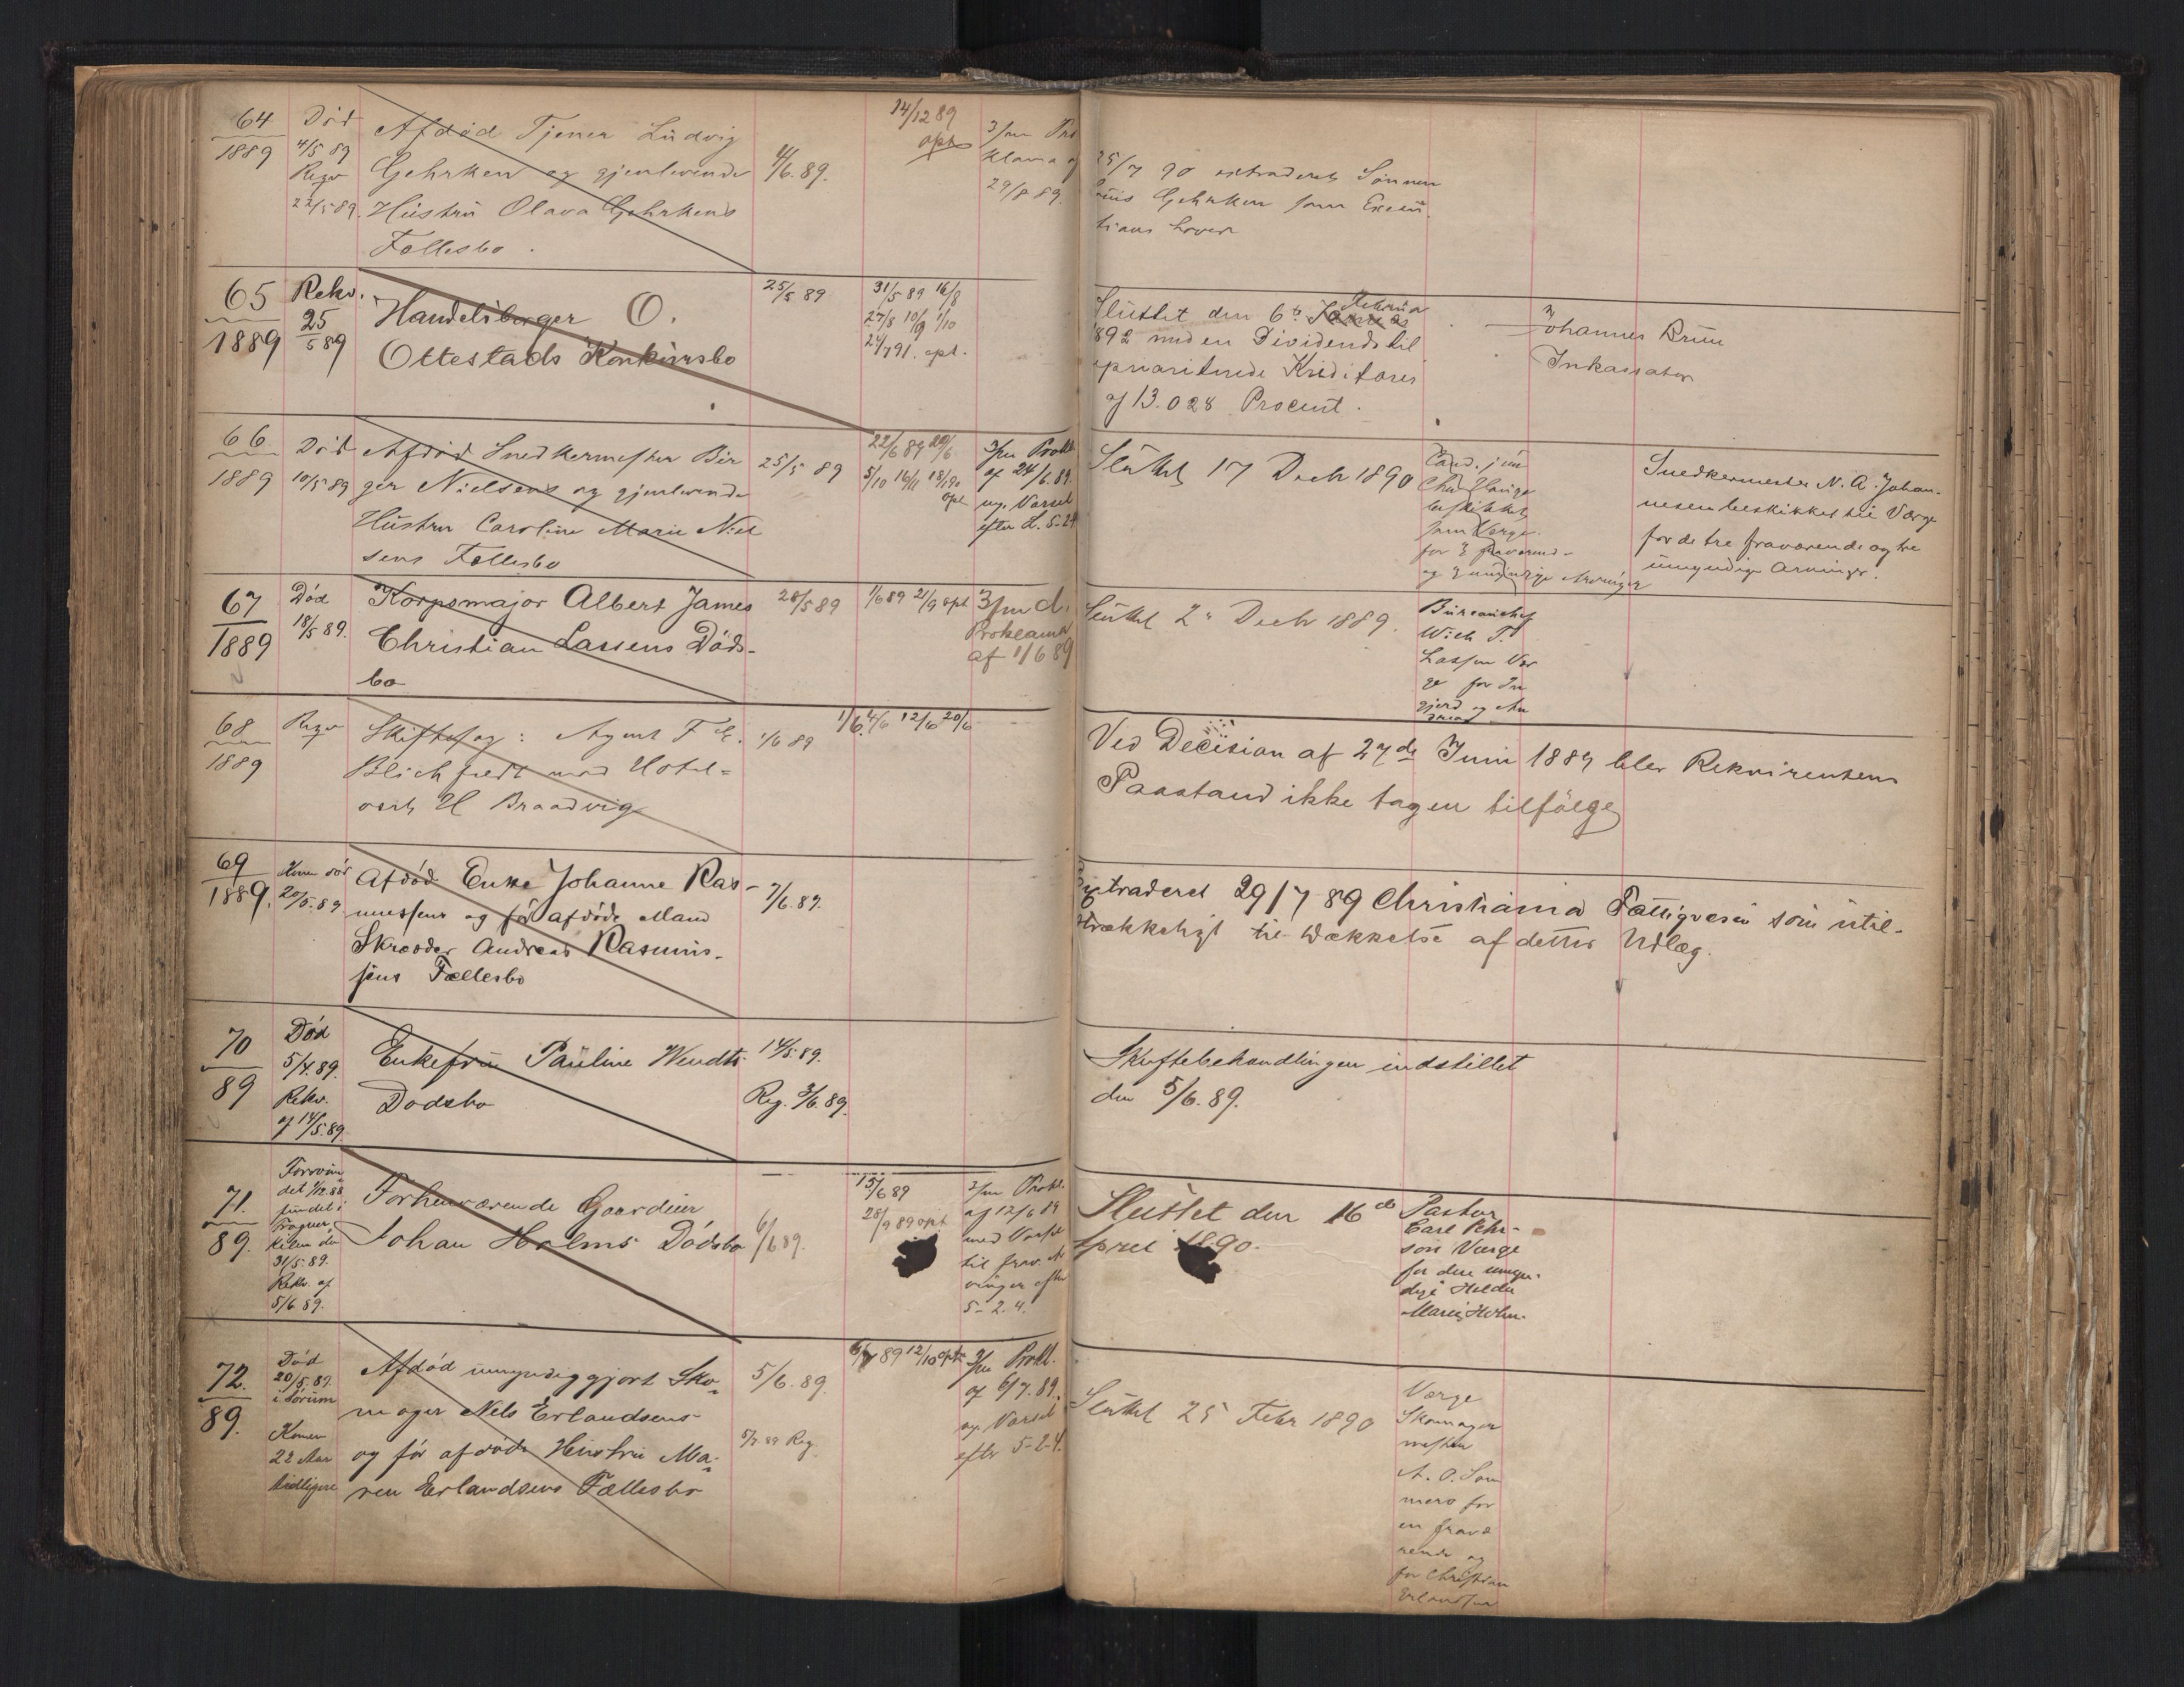 64
1889
Död
4/5 89
Reqv
22/5 89.
Afdöd Tjener Ludvig
Gehrken og gjenlevende
Hustru Olava Gehrkens
Fællesbo.
4/6. 89.
14/12 89
opt
3/m Pro
klama af
29/8 89.
25/7 90 extraderet Sönnen
Gehrken som Execu
tions haver
65
1889
Rekv.
25
5 89
Handelsborger O.
Ottestads Konkursbo
25/5 89
31/5 89 16/8
27/8 10/9 1/10
24/7 91. opt.
Sluttet den 6te Februar
1892 med en Dividende til
uprioriterede Kreditorer
af 13.028 Procent.
Johannes Bruu
Inkassator
66.
1889
Död
10/5 89
Afdöd Snedkermester Bir
ger Nielsens og gjenlevende
Hustru Caroline Marie Niel
sens Fællesbo
25/5 89
22/6 89 29/6
5/10 16/11 18/1 90
opt
3/m Prokl
af 24/6. 89.
og. Varsel
efter L. 5-2-4
Sluttet 17 Decb 1890
Cand. jur
Chr Hauge
beskikket
som Værge
for 3 fraværende
og 3 umyndige Arvinger
Snedkermester N. A. Johan-
nesen beskikket til Værge
for de tre fraværende og tre
umyndige Arvinger.
67
1889
Död
18/5 89.
Korpsmajor Albert James
Christian Lassens Döds-
bo
28/5 89
1/6 89 21/9 opt
3/m d.
Proklama
af 1/6 89
Sluttet 2den Decb 1889.
Bureauchef
Wich T.
Lassen Vær
ge for In
gjerd og An
drea
68
1889
Reqv
Skiftesag: Agent F E.
Blichfeldt mod Hotel-
vert H Braadvig
1/6 89
1/6. 4/6 12/6 20/6
Ved Decision af 27de Juni 1889 blev Rekvirentens
Paastand ikke tagen tilfölge
69
1889.
Konen död
20/5. 89
Afdöd Enke Johanne Ras-
mussens og för afdöde Mand
Skræder Andreas Rasmus-
sens Fællesbo
7/6. 89.
Extraderet 29/7 89 Christiania Fattigvesen som util-
strækkeligt til Dækkelse af dettes Udlæg.
70
89
Död
5/4. 89.
Rekv.
af 14/5. 89.
Enkefru Pauline Wendts
Dödsbo
14/5. 89.
Reg. 3/6. 89.
Skiftebehandlingen indstillet
den 5/6. 89.
71.
89.
Forsvun
det 1/12. 88
fundet i
Frogner
kilen den
31/5. 89.
Rekv. af
5/6 89.
Forhenværende Gaardeier
Johan Holms Dödsbo
6/6 89.
15/6 89
28/9 89 opt
3/m Prokl.
af 12/6 89
med Varsel
til frav. Ar
vinger efter
5-2-4.
Sluttet den 16de
April 1890.
Pastor
Carl Pehr-
son Værge
for den umyn-
dige Hilda
Marie Holm.
72.
89.
Död
20/5. 89.
i Sörum
Konen
22 Aar
tidligere
Afdöd umyndiggjort Sko-
mager Nels Erlandsens
og för afdöde Hustru Ma-
ren Erlandsens Fællesbo
5/6. 89.
5/7 89 Reg.
6/7 89 12/10 opt
3/m Prokl.
af 6/7. 89.
og Varsel
efter 5-2-4.
Sluttet 25 Febr 1890
Værge
Skomager
mester
A. O. Som
mero for
en fravæ
rende og
for Christian
Erlandsen